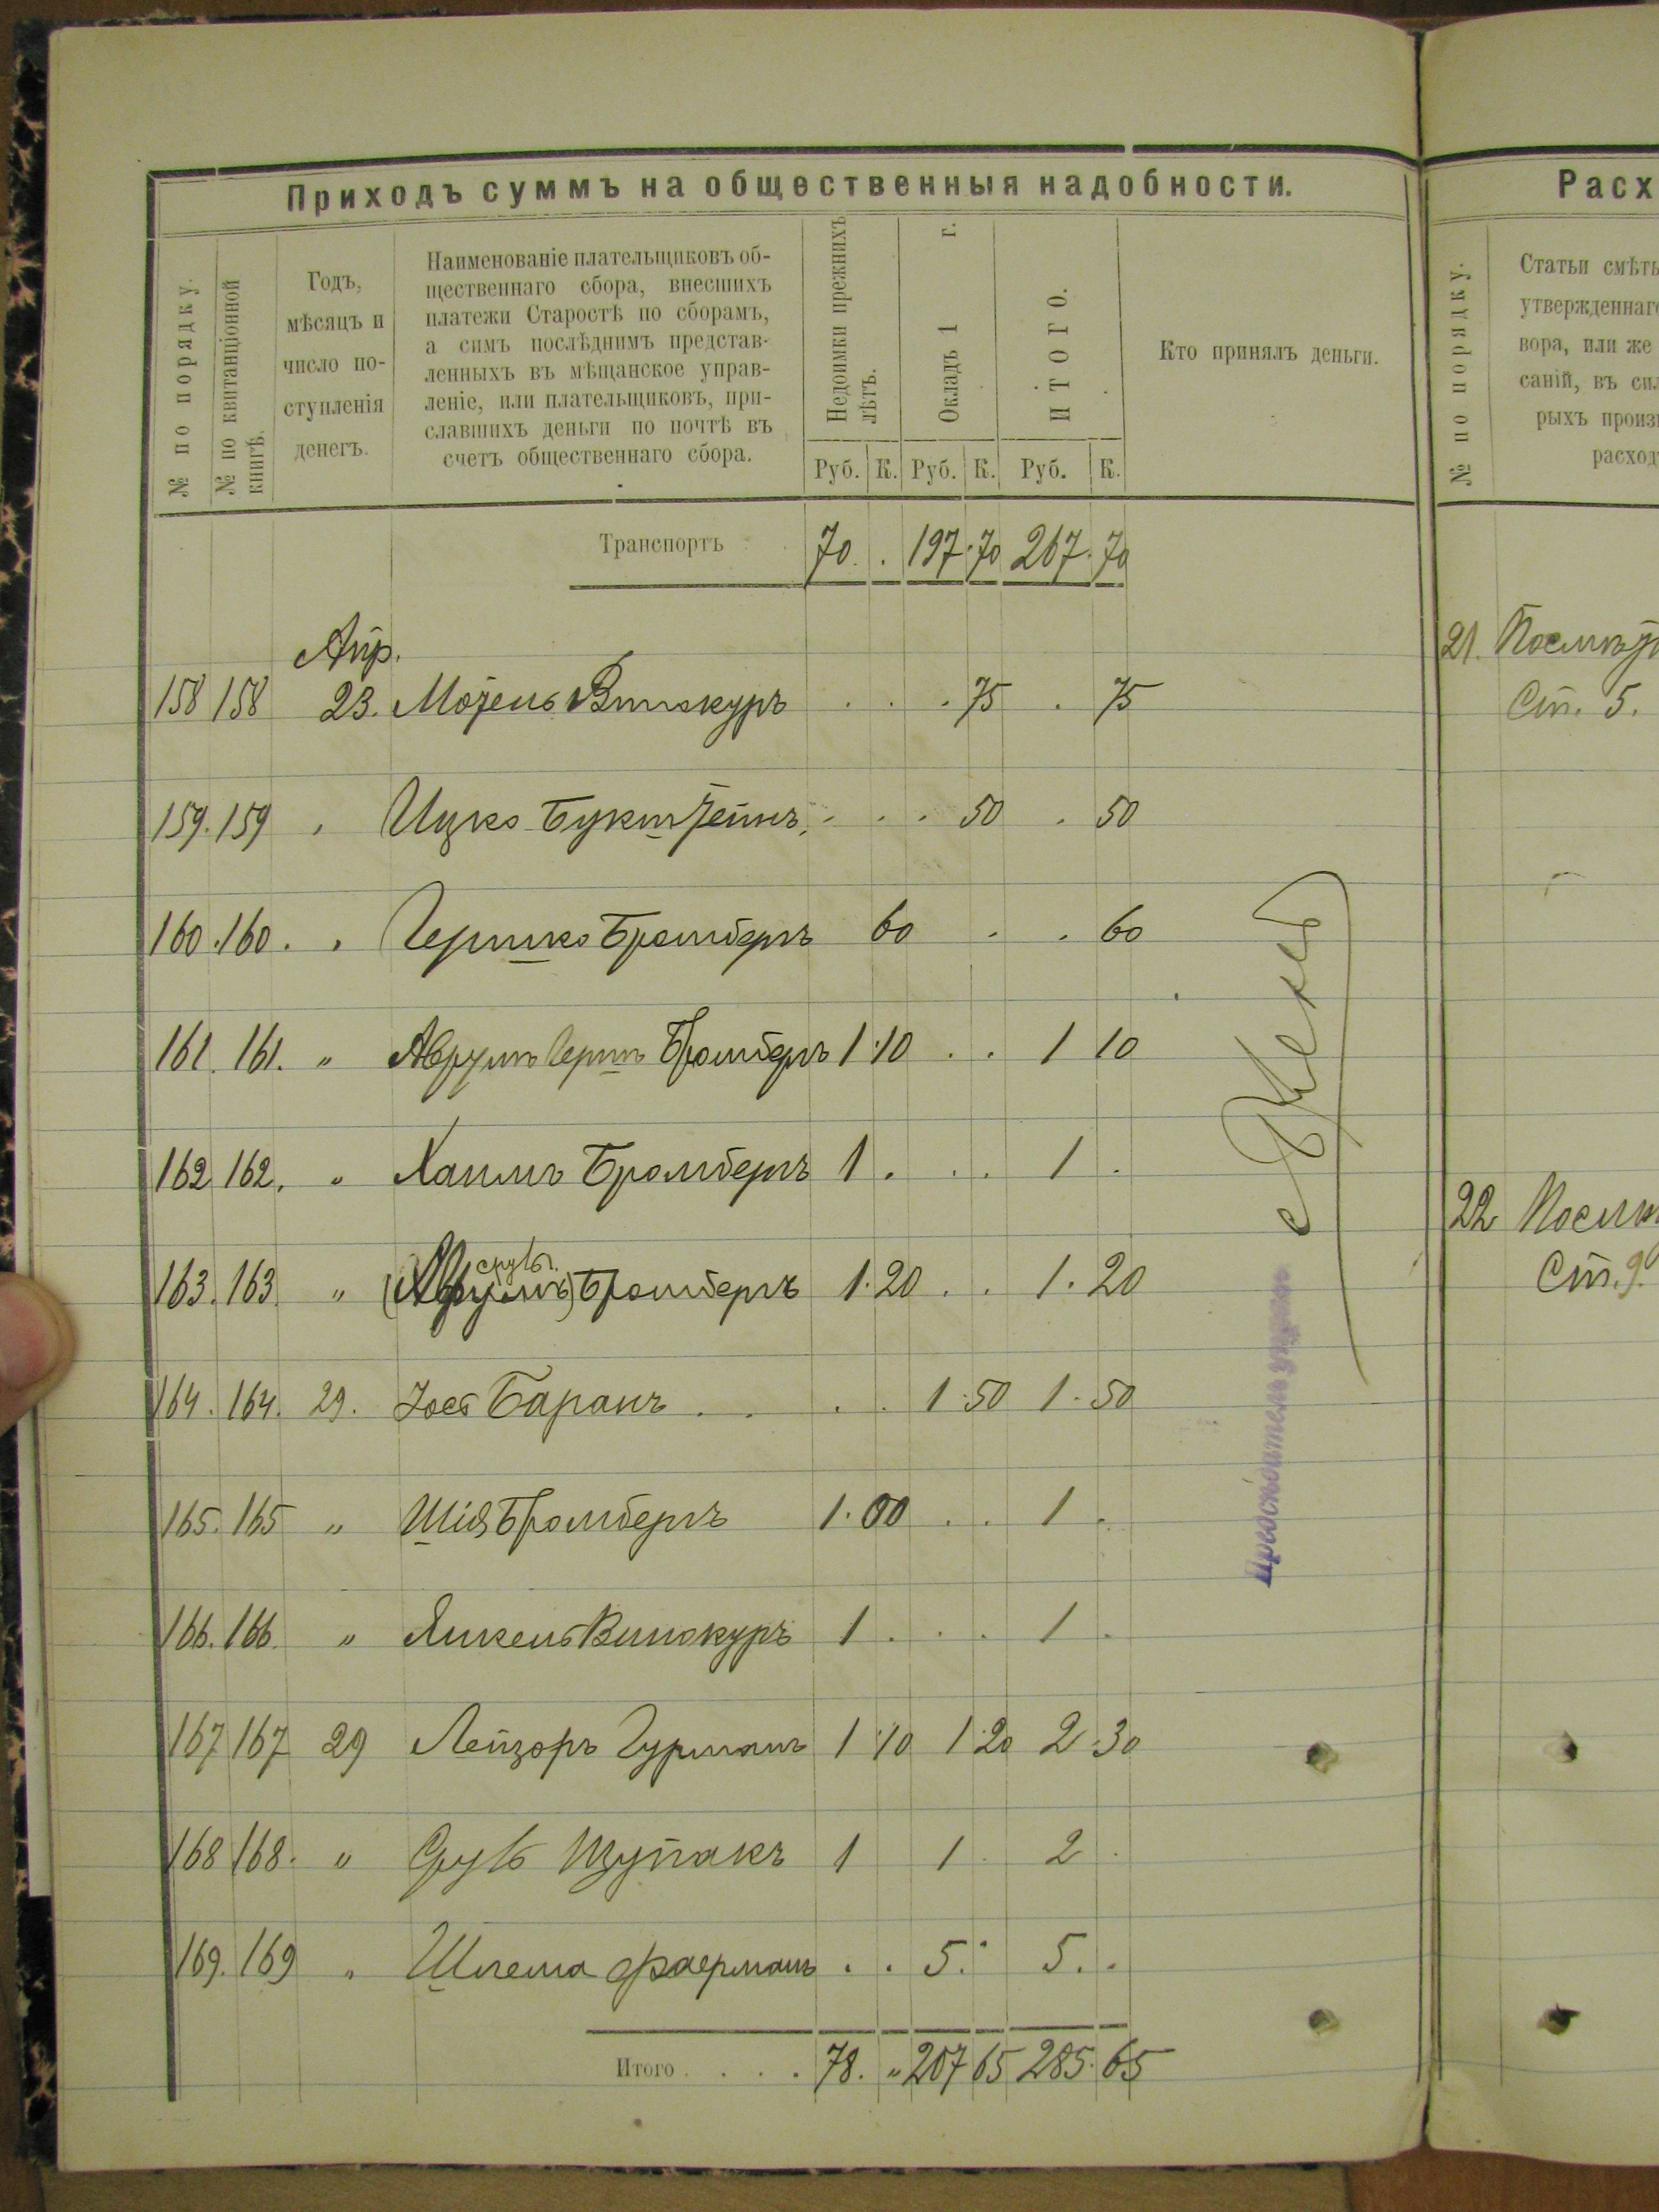 Приходъ суммъ на общественныя надобности.
№ по порядку.
№ по квитанціонной книгѣ.
Годъ,
мѣсяцъ и
число по-
ступленія
денегъ.
Наименованіе плательщиковъ об-
щественнаго сбора, внесшихъ
платежи Старостѣ по сборамъ,
а симъ послѣднимъ представ-
ленныхъ въ мѣщанское управ-
леніе, или плательщиковъ, при-
славшихъ деньги по почтѣ въ
счетъ общественнаго сбора.
Недоимки прежнихъ лѣтъ.
Окладъ 1 г.
Итого.
Кто принялъ деньги.
Руб. К. Руб. К. Руб. К.
Транспортъ 70 . 197 70 267 70
Апр.
158 158 23. Мотель Винокуръ . . . 75 . 75
159. 159 " Ицко Букштейнъ . . . 50 . 50
160. 160. " Гершко Бромбергъ 60 . . 60
161. 161. " Аврумъ Гершъ Бромбергъ 1 10 . . 1 10
162 162. " Хаимъ Бромбергъ 1 . . . 1 .
срулъ
163. 163. " (Аврумъ) Бромбергъ 1. 20 . . 1. 20
164. 164. 29. Іосъ Баранъ . . . . 1 50 1. 50
165. 165 " Шія Бромбергъ 1. 00 . . 1 .
166. 166. " Янкель Винокуръ 1 . . . 1 .
167 167 29 Лейзоръ Гурманъ 1 10 1 20 2 30
168 168. " Сруль Щупакъ 1 1. 2 .
169. 169 " Шлема Фаерманъ . . 5. 5. .
Итого . . . . 78. " 207 65 285. 65
Расх
№ по порядку.
Статьи смѣты
утвержденнаго
вора, или же
саній, въ сил
рыхъ произв
расход
21.
Ст. 5.
22
Ст. 9.